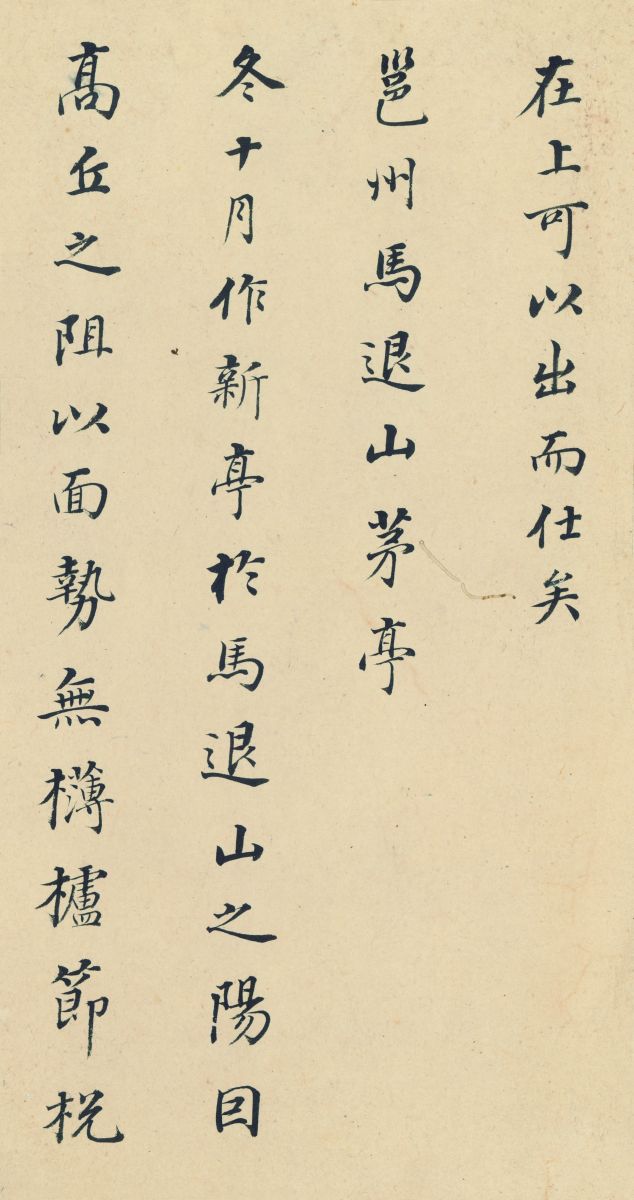 在上可以出而仕矣
邕州馬退山茅亭
冬十月作新亭於馬退山之陽因
高丘之阻以面勢無欂櫨節梲